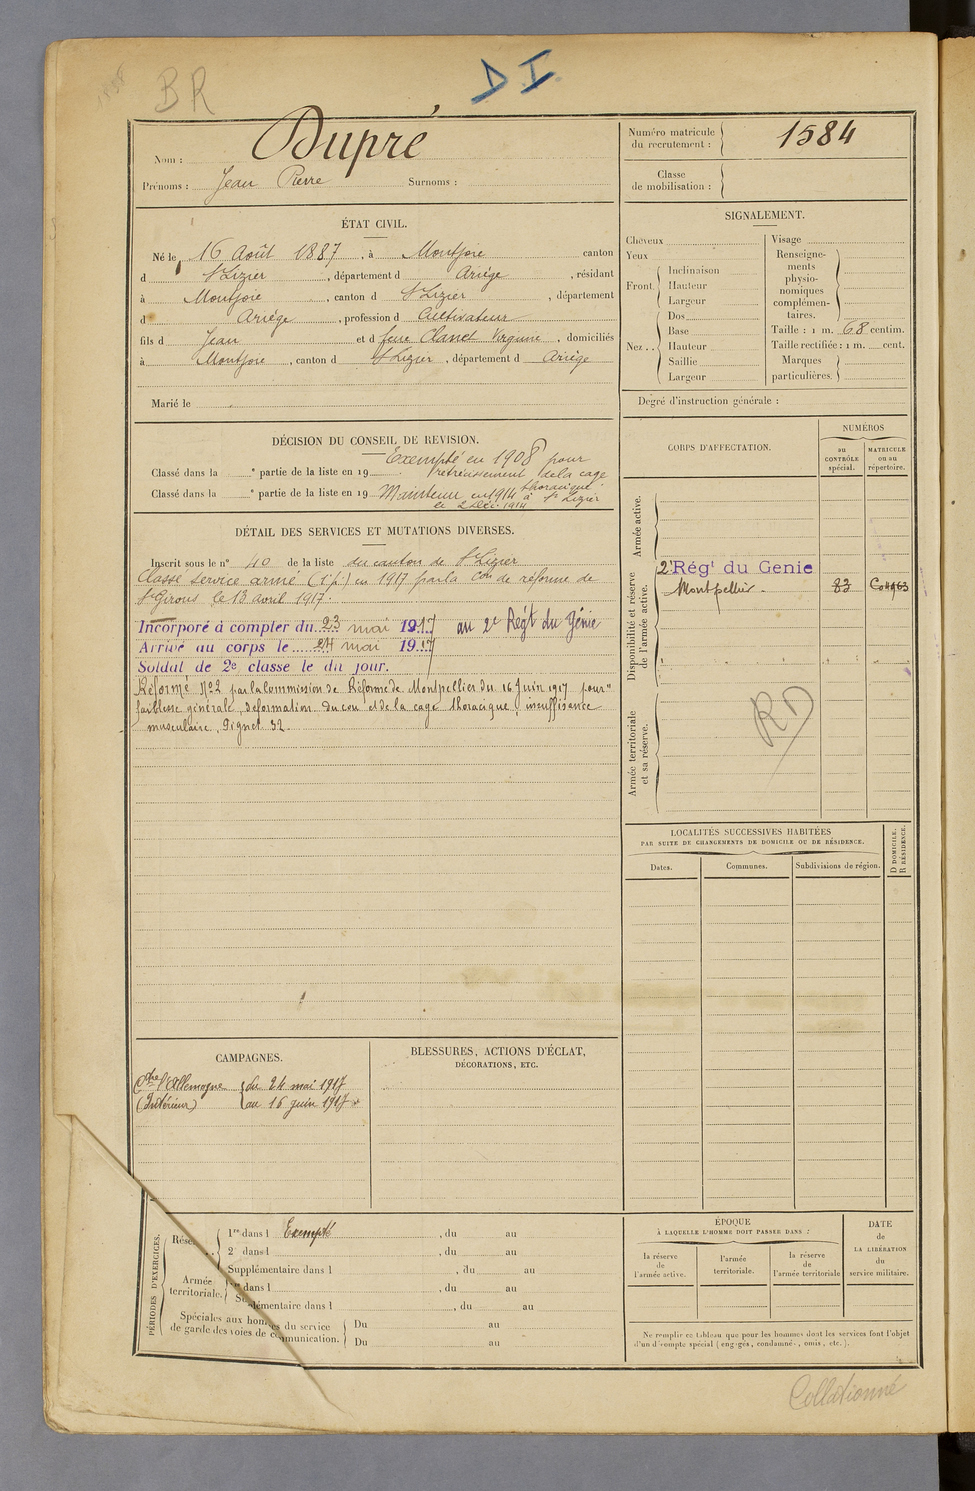 BR
D I
Nom : Dupré
Prénoms : Jean Pierre Surnoms :
Numéro matricule du recrutement : 1584
Classe de mobilisation :
ÉTAT CIVIL.
Né le 16 Août 1887, à Montjoie canton
d St Lizier, département d Ariège, résidant
à Montjoie, canton d St Lizier, département
d Ariège, profession d Cultivateur
fils d Jean et d feue Clanet Virginie, domiciliés
à Montjoie, canton d St Lizier, département d Ariège
Marié le
SIGNALEMENT.
Cheveux
Yeux
Front. Inclinaison
Hauteur
Largeur
Nez .. Dos
Base
Hauteur
Saillie
Largeur
Visage
Renseignements physionomiques complémentaires.
Taille : 1 m. 68 centim.
Taille rectifiée : 1 m. cent.
Marques particulières.
Degré d'instruction générale :
DÉCISION DU CONSEIL DE REVISION.
Exempté en 1908 pour
Classé dans la e partie de la liste en 19 rétrécissement de la cage
thoracique.
Classé dans la e partie de la liste en 19 Maintenu en 1914 à St Lizier
le 2 Déc. 1914
DÉTAIL DES SERVICES ET MUTATIONS DIVERSES.
Inscrit sous le n° 40 de la liste du canton de St Lizier
Classé service armé (1e p.) en 1917 par la Con de réforme de
St Girons le 13 avril 1917.
Incorporé à compter du 23 mai 1917 au 2e Régt du Génie
Arrivé au corps le 24 mai 1917
Soldat de 2e classe le dit jour.
Réformé No 2 par la Commission de Réforme de Montpellier du 16 Juin 1917 pour "
faiblesse générale, déformation du cou et de la cage thoracique, insuffisance
musculaire, Pignet 32
CORPS D'AFFECTATION.
NUMÉROS
au CONTRÔLE spécial.
MATRICULE ou au répertoire.
Armée active.
Disponibilité et réserve de l'armée active.
2e Régt du Génie
Montpellier - 83
Armée territoriale et sa réserve.
RD
LOCALITÉS SUCCESSIVES HABITÉES
PAR SUITE DE CHANGEMENTS DE DOMICILE OU DE RÉSIDENCE.
Dates. Communes. Subdivisions de région.
D DOMICILE.
R RÉSIDENCE.
CAMPAGNES.
Ctre l'Allemagne du 24 mai 1917
(Intérieur) au 16 juin 1917
BLESSURES, ACTIONS D'ÉCLAT,
DÉCORATIONS, ETC.
PÉRIODES D'EXERCICES.
Rése
1re dans l Exempté, du au
2e dans l, du au
Supplémentaire dans l, du au
Armée territoriale.
dans l, du au
Supplémentaire dans l, du au
Spéciales aux hommes du service
de garde des voies de communication.
Du au
Du au
ÉPOQUE
À LAQUELLE L'HOMME DOIT PASSER DANS :
la réserve de l'armée active.
l'armée territoriale.
la réserve de l'armée territoriale
DATE de LA LIBÉRATION du service militaire.
Ne remplir ce tableau que pour les hommes dont les services font l'objet
d'un décompte spécial (engagés, condamnés, omis, etc.).
Collationné